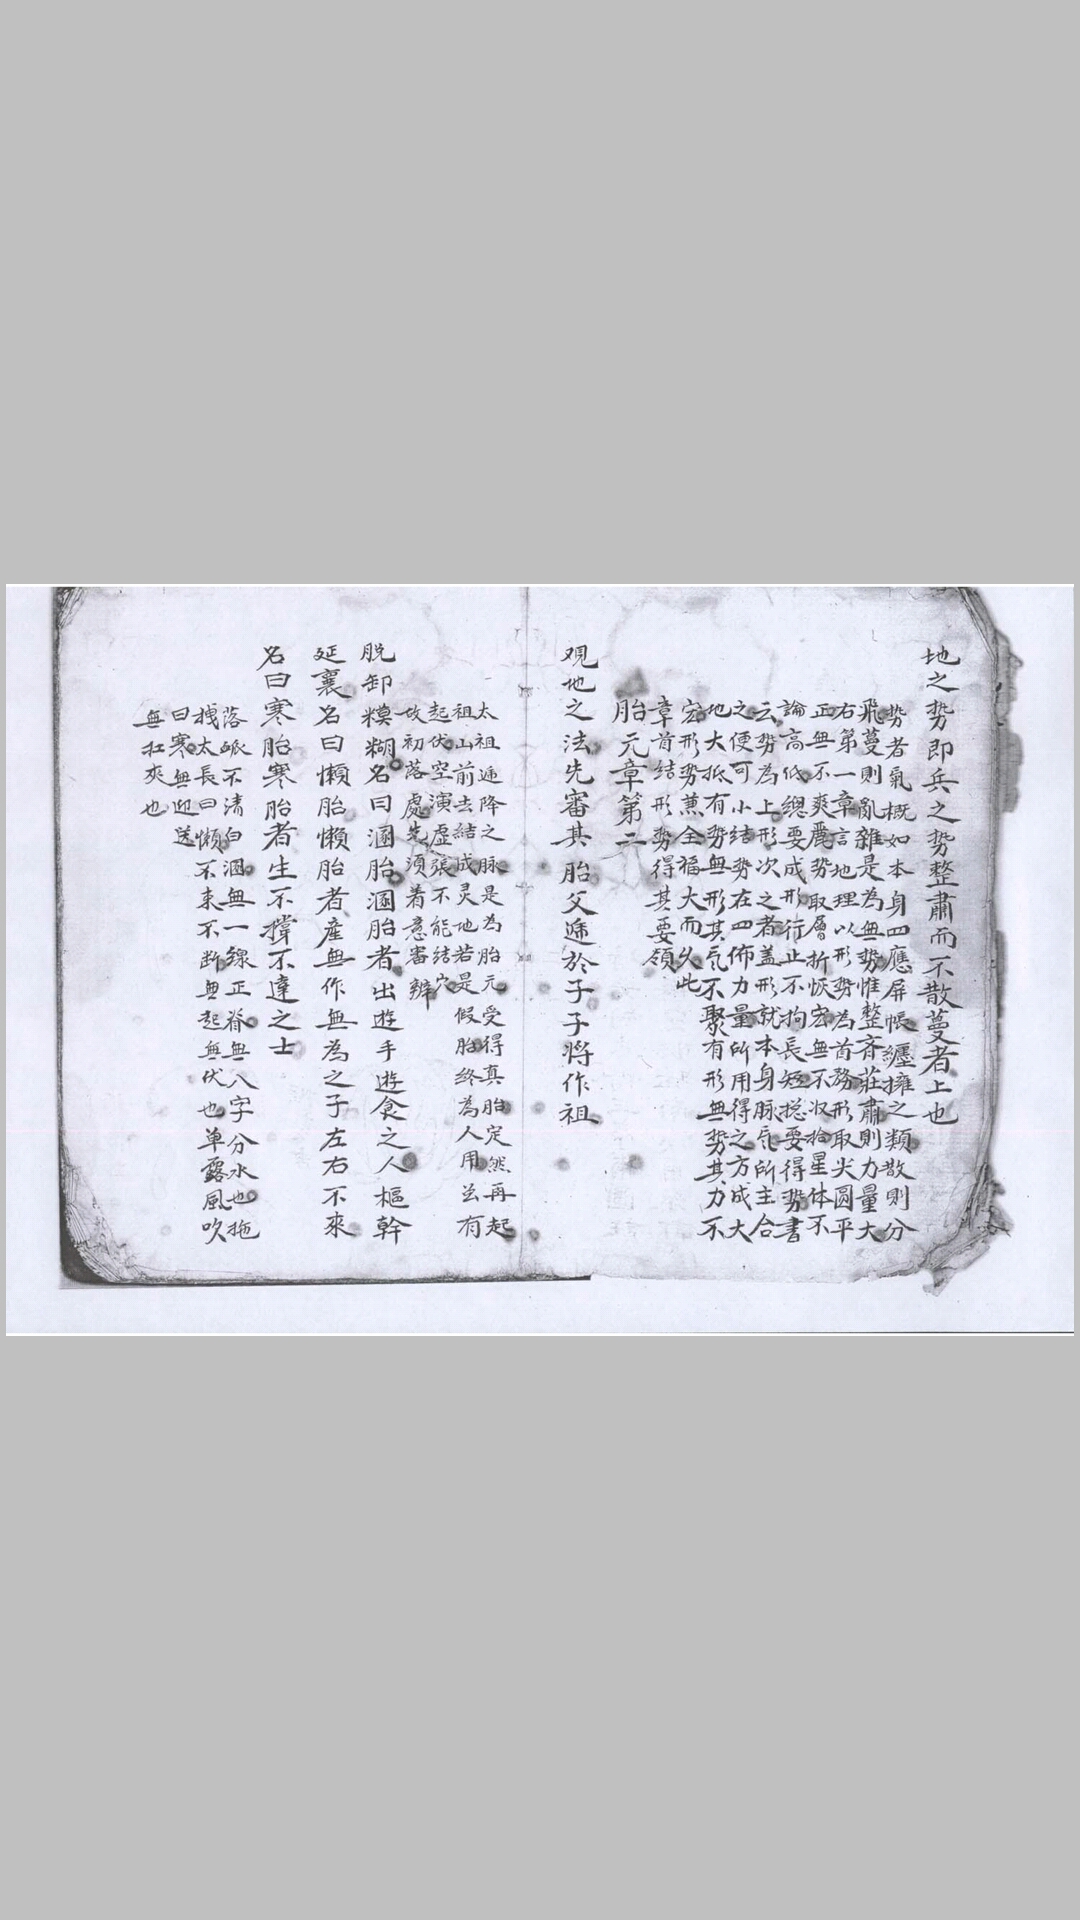 地之势即兵之势整肅而不散蔓者上也
势者氣概如本身四應屏帳纒擁之類散則分
飛蔓則亂雜是為無势惟整齐莊肅則力量大
右第一章言地理以形势為首務形取尖圓平
正無不爽麗势取層折恢宏無不收拾星体不
論高低總要成形行止不拘長短揔要得势書
云势為上形次之者盖形就本身脉气所主合
之便可小结势在四佈力量所用得之方成大
地大抵有势無形其气不聚有形無势其力不
宏形势蕉全福大而久此
章首结形势得其要領
胎元章第二
观地之法先審其胎父递於子子將作祖
太祖逓降之脉是为胎元受得真胎定然再起
祖山前去結成灵地若是假胎终為人用並有
起伏空演虚張不能结穴
故初落處先须着意審辨
脱卸糢糊名曰溷胎溷胎者出遊手遊食之人樞幹
延襄名曰懶胎懶胎者產無作無為之子左右不來
名曰寒胎寒胎者生不撑不達之士
落脈不清白溷無一線正脊無八字分水也拖
拽太長曰懒不束不断無起無伏也单露風吹
曰寒無迎送
無扛夾也